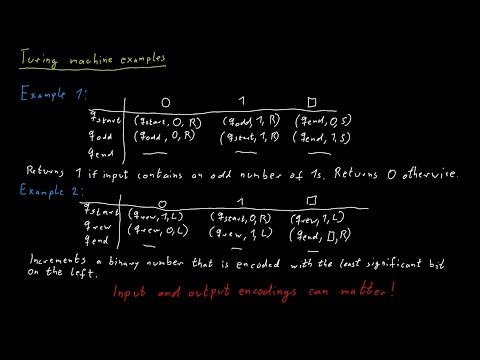 Turing machine examples
Example 1:
0 1 □
qstart (qstart, 0, R) (qodd, 1, R) (qend, 0, S)
qodd (qodd, 0, R) (qstart, 1, R) (qend, 1, S)
qend — — —
Returns 1 if input contains an odd number of 1s. Returns 0 otherwise.
Example 2:
0 1 □
qstart (qrew, 1, L) (qstart, 0, R) (qrew, 1, L)
qrew (qrew, 0, L) (qrew, 1, L) (qend, □, R)
qend — — —
Increments a binary number that is encoded with the least significant bit
on the left.
Input and output encodings can matter!